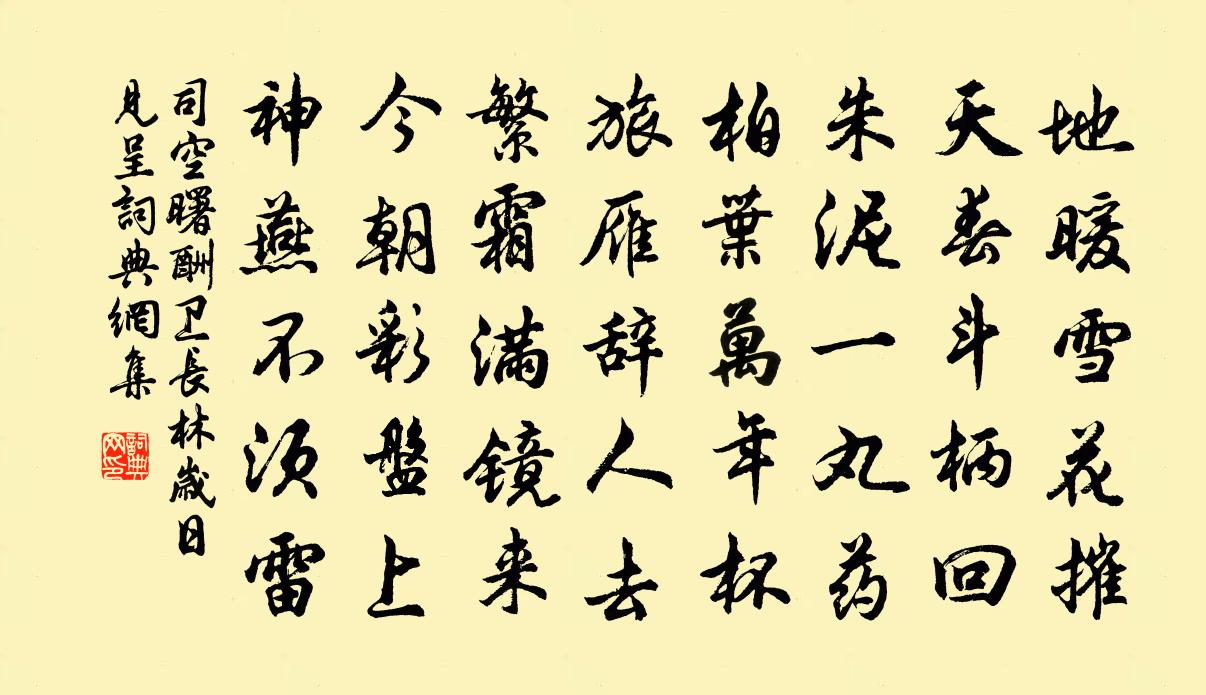 地暖雪花摧
天春斗柄回
朱泥一丸药
柏葉萬年杯
旅雁辞人去
繁霜满镜来
今朝彩盤上
神燕不须雷
司空曙酬卫長林嵗日
見呈詞典網集
詞典网印